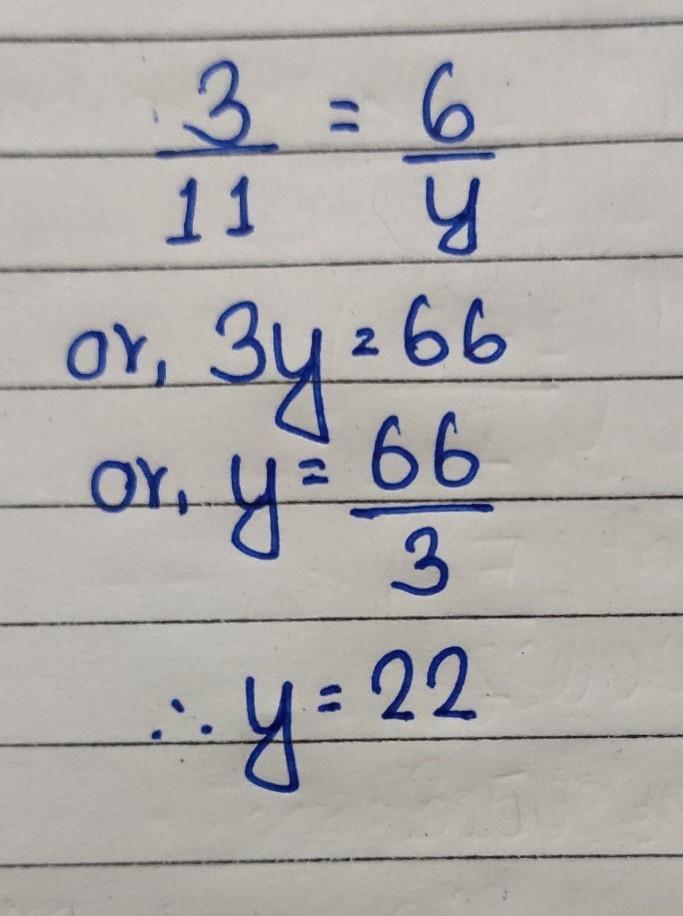 3/11 = 6/y
or, 3y = 66
or, y = 66/3
∴ y = 22